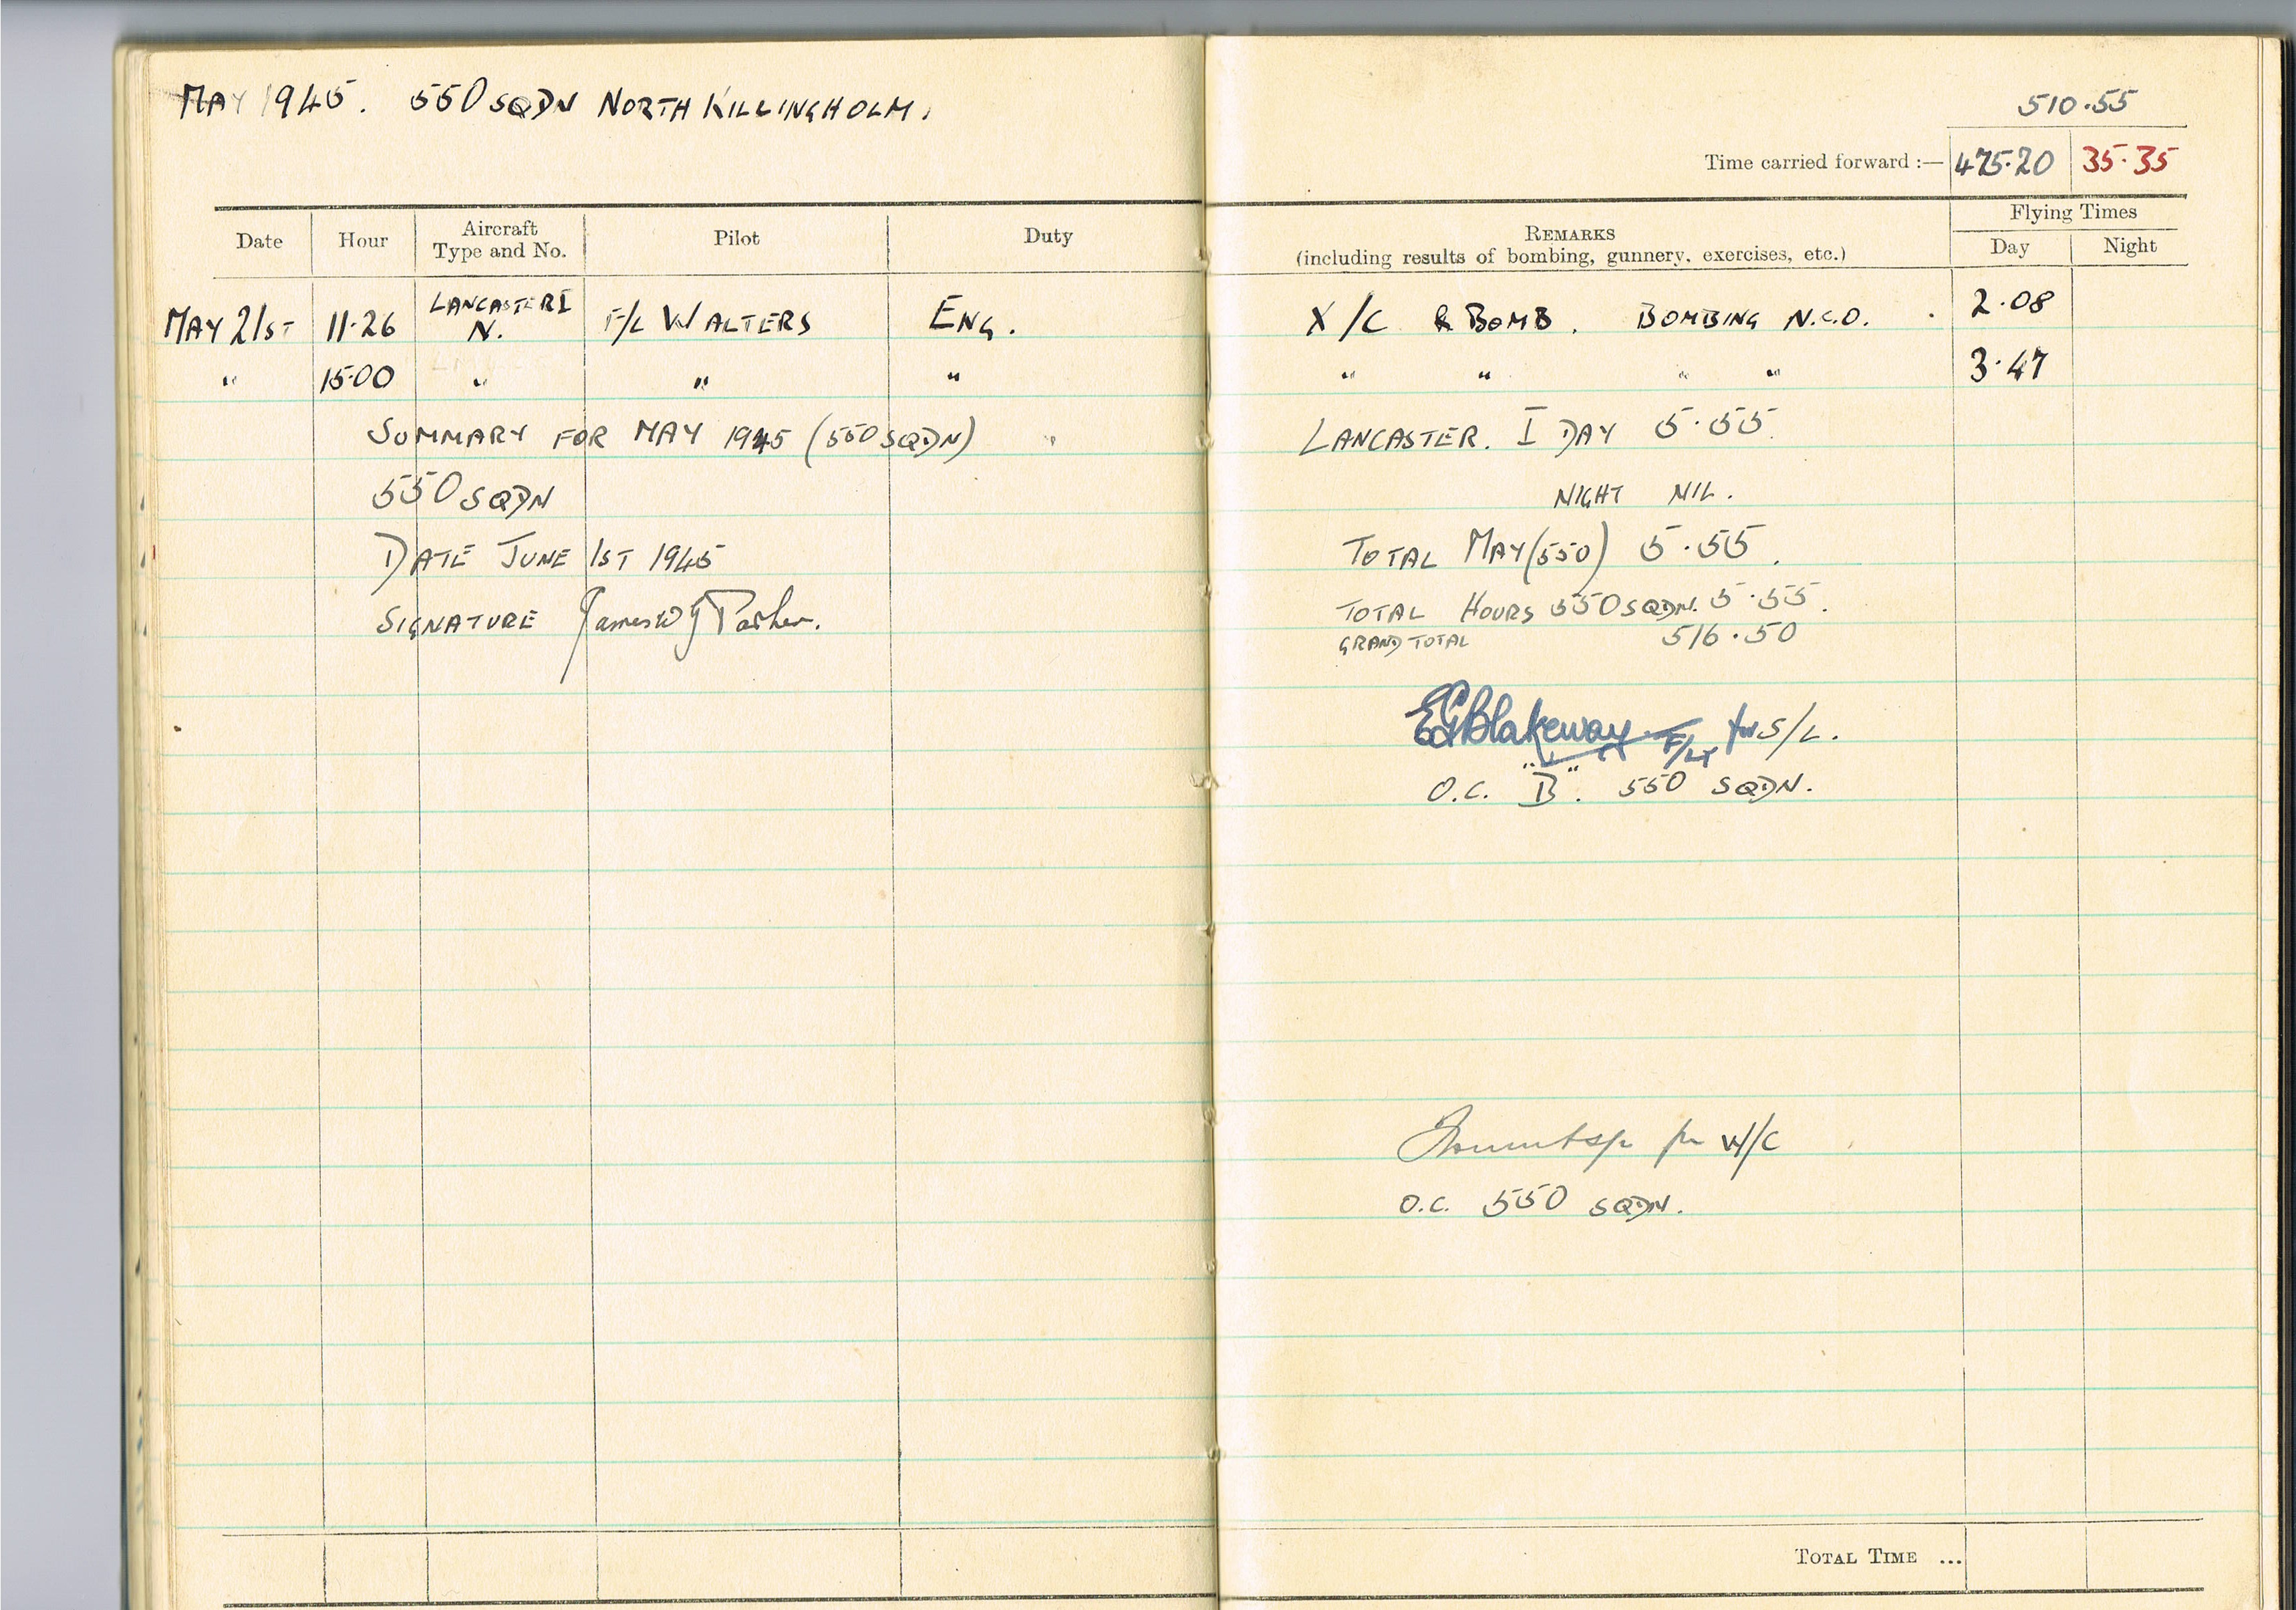 MAY 1945. 550 SQDN NORTH KILLINGHOLM.
510.55
Time carried forward :— 475.20 35.35
Date Hour Aircraft Type and No. Pilot Duty
REMARKS (including results of bombing, gunnery, exercises, etc.) Flying Times Day Night
MAY 21ST 11.26 LANCASTER I N. F/L WALTERS ENG. X/C & BOMB. BOMBING N.C.O. 2.08
" 15.00 " " " " " " " 3.47
SUMMARY FOR MAY 1945 (550 SQDN) LANCASTER. I DAY 5.55.
550 SQDN NIGHT NIL.
DATE JUNE 1ST 1945 TOTAL MAY (550) 5.55.
SIGNATURE James W J Parker. TOTAL HOURS 550 SQDN. 5.55.
GRAND TOTAL 516.50
EGBlakeway F/Lt for S/L.
O.C. "B". 550 SQDN.
for W/C
O.C. 550 SQDN.
TOTAL TIME ...